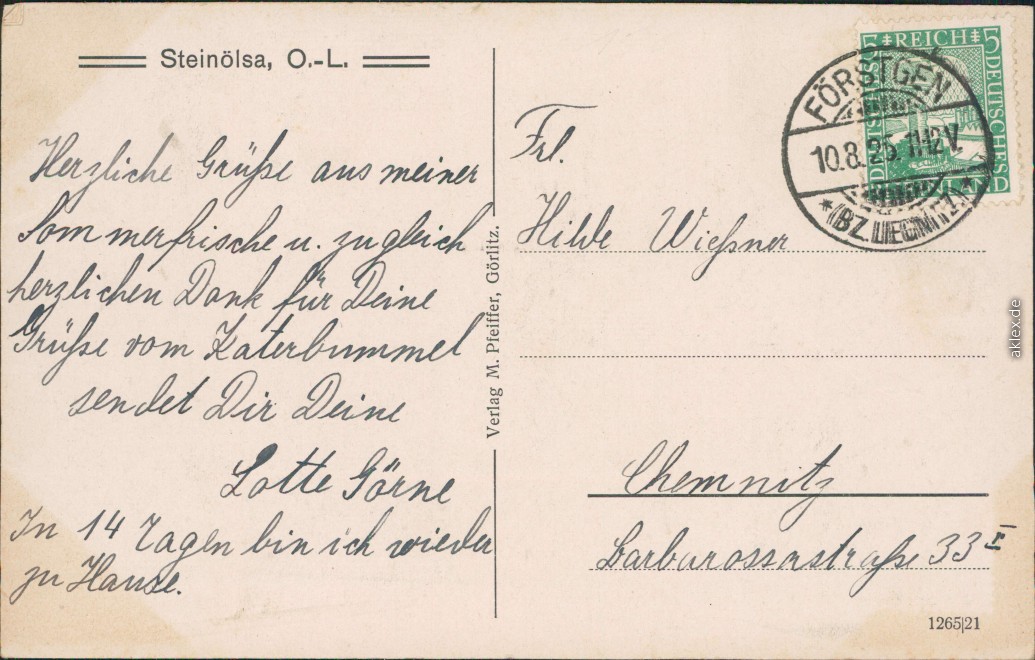 Steinölsa, O.-L.
Herzliche Grüße aus meiner
Sommerfrische u. zugleich
herzlichen Dank für Deine
Grüße vom Katerbummel
sendet Dir Deine
Lotte Görne
In 14 Tagen bin ich wieder
zu Hause.
Verlag M. Pfeiffer, Görlitz.
5 REICH 5
DEUTSCHES
FÖRSTGEN
10.8.25. 11-12 V.
* (BZ. LIEGNITZ) *
Frl.
Hilde Wießner
Chemnitz
Barbarossastraße 33 I
1265|21
aklex.de